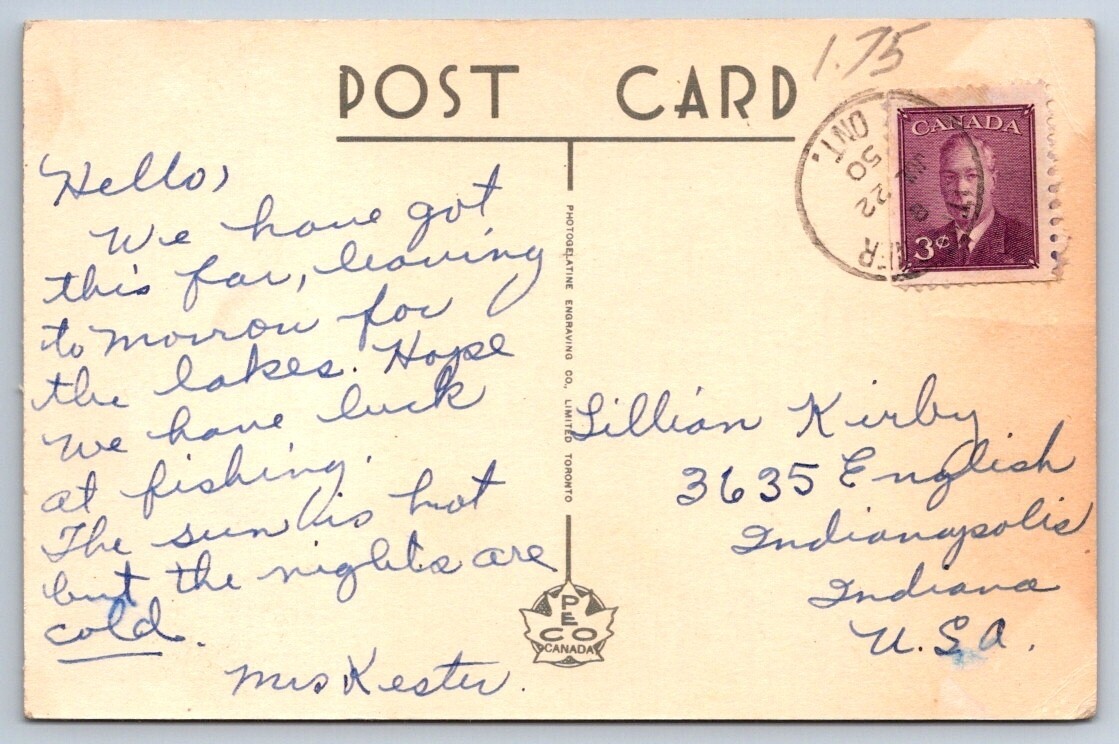 1.75
POST CARD
CANADA
3¢
ONT.
50
22
JU
Hello,
We have got
this far, leaving
to morrow for
the lakes. Hope
we have luck
at fishing.
The sun is hot
but the nights are
cold.
Mrs Kester.
PHOTOGELATINE ENGRAVING CO., LIMITED TORONTO
PECO
CANADA
Lillian Kirby
3635 English
Indianapolis
Indiana
U.S.A.